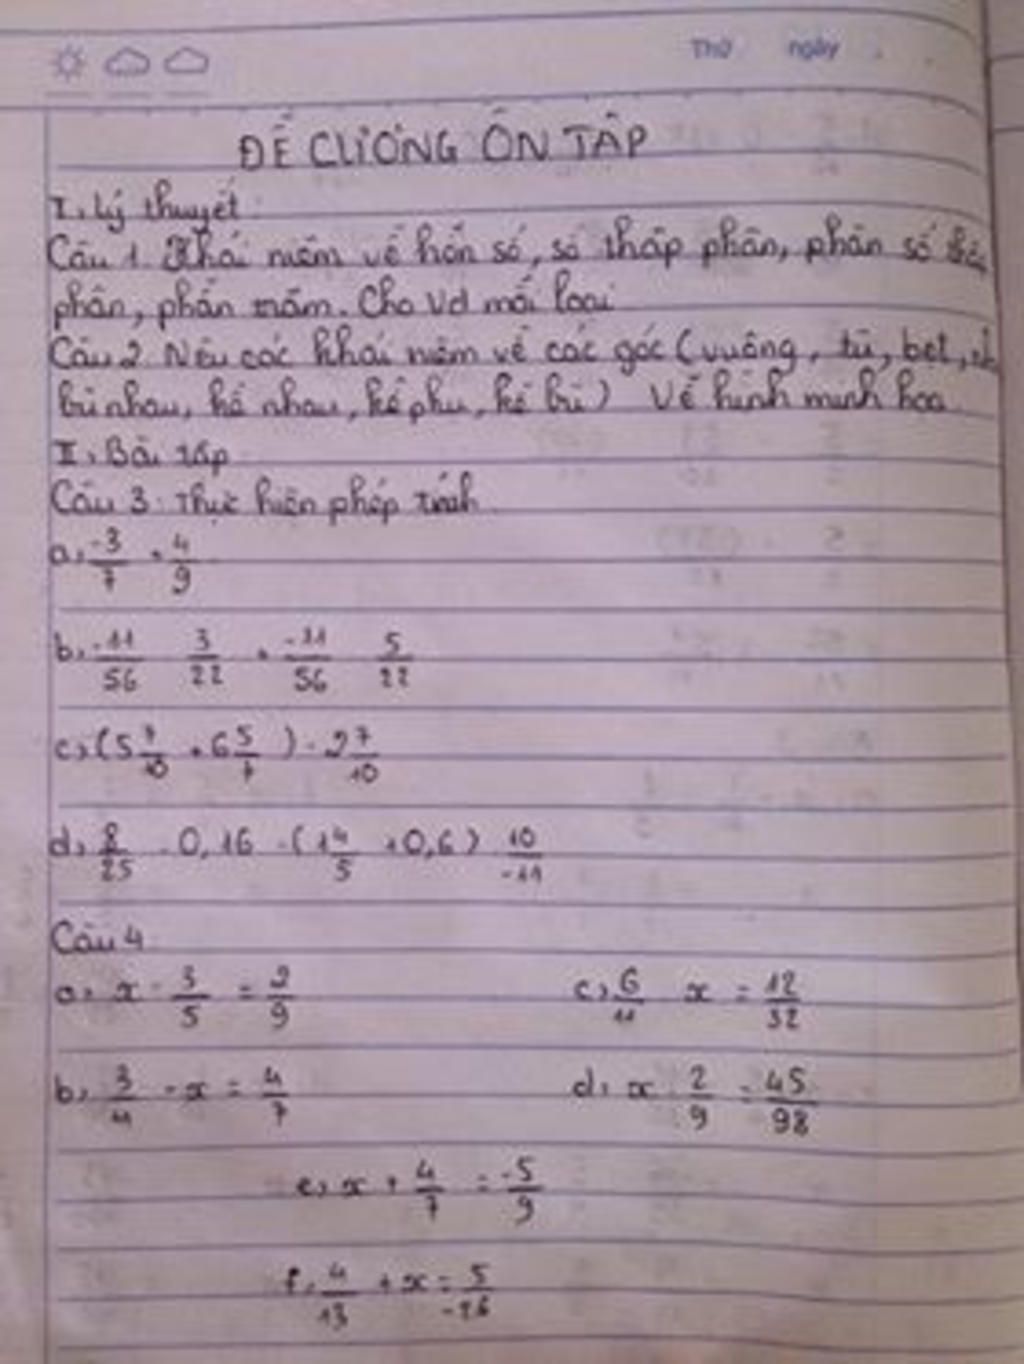 Thứ ngày
ĐỀ CƯƠNG ÔN TẬP
I, Lý thuyết:
Câu 1. Khái niệm về hỗn số, số thập phân, phân số
phân, phần trăm. Cho Vd mỗi loại
Câu 2. Nêu các khái niệm về các góc (vuông, tù, bẹt,
bù nhau, kề nhau, kề phụ, kề bù) Vẽ hình minh họa
II, Bài tập
Câu 3: Thực hiện phép tính
a, -3/7 + 4/9
b, -11/56 . 3/22 + -11/56 . 5/22
c, (5 7/10 + 6 5/7) - 2 7/10
d, 8/25 - 0,16 - (1 4/5 + 0,6) : 10/-11
Câu 4
a, x - 3/5 = 2/9 c, 6/11 x = 12/32
b, 3/4 - x = 4/7 d, x : 2/9 = 45/98
e, x + 4/7 = -5/9
f, 4/13 + x = 5/-26